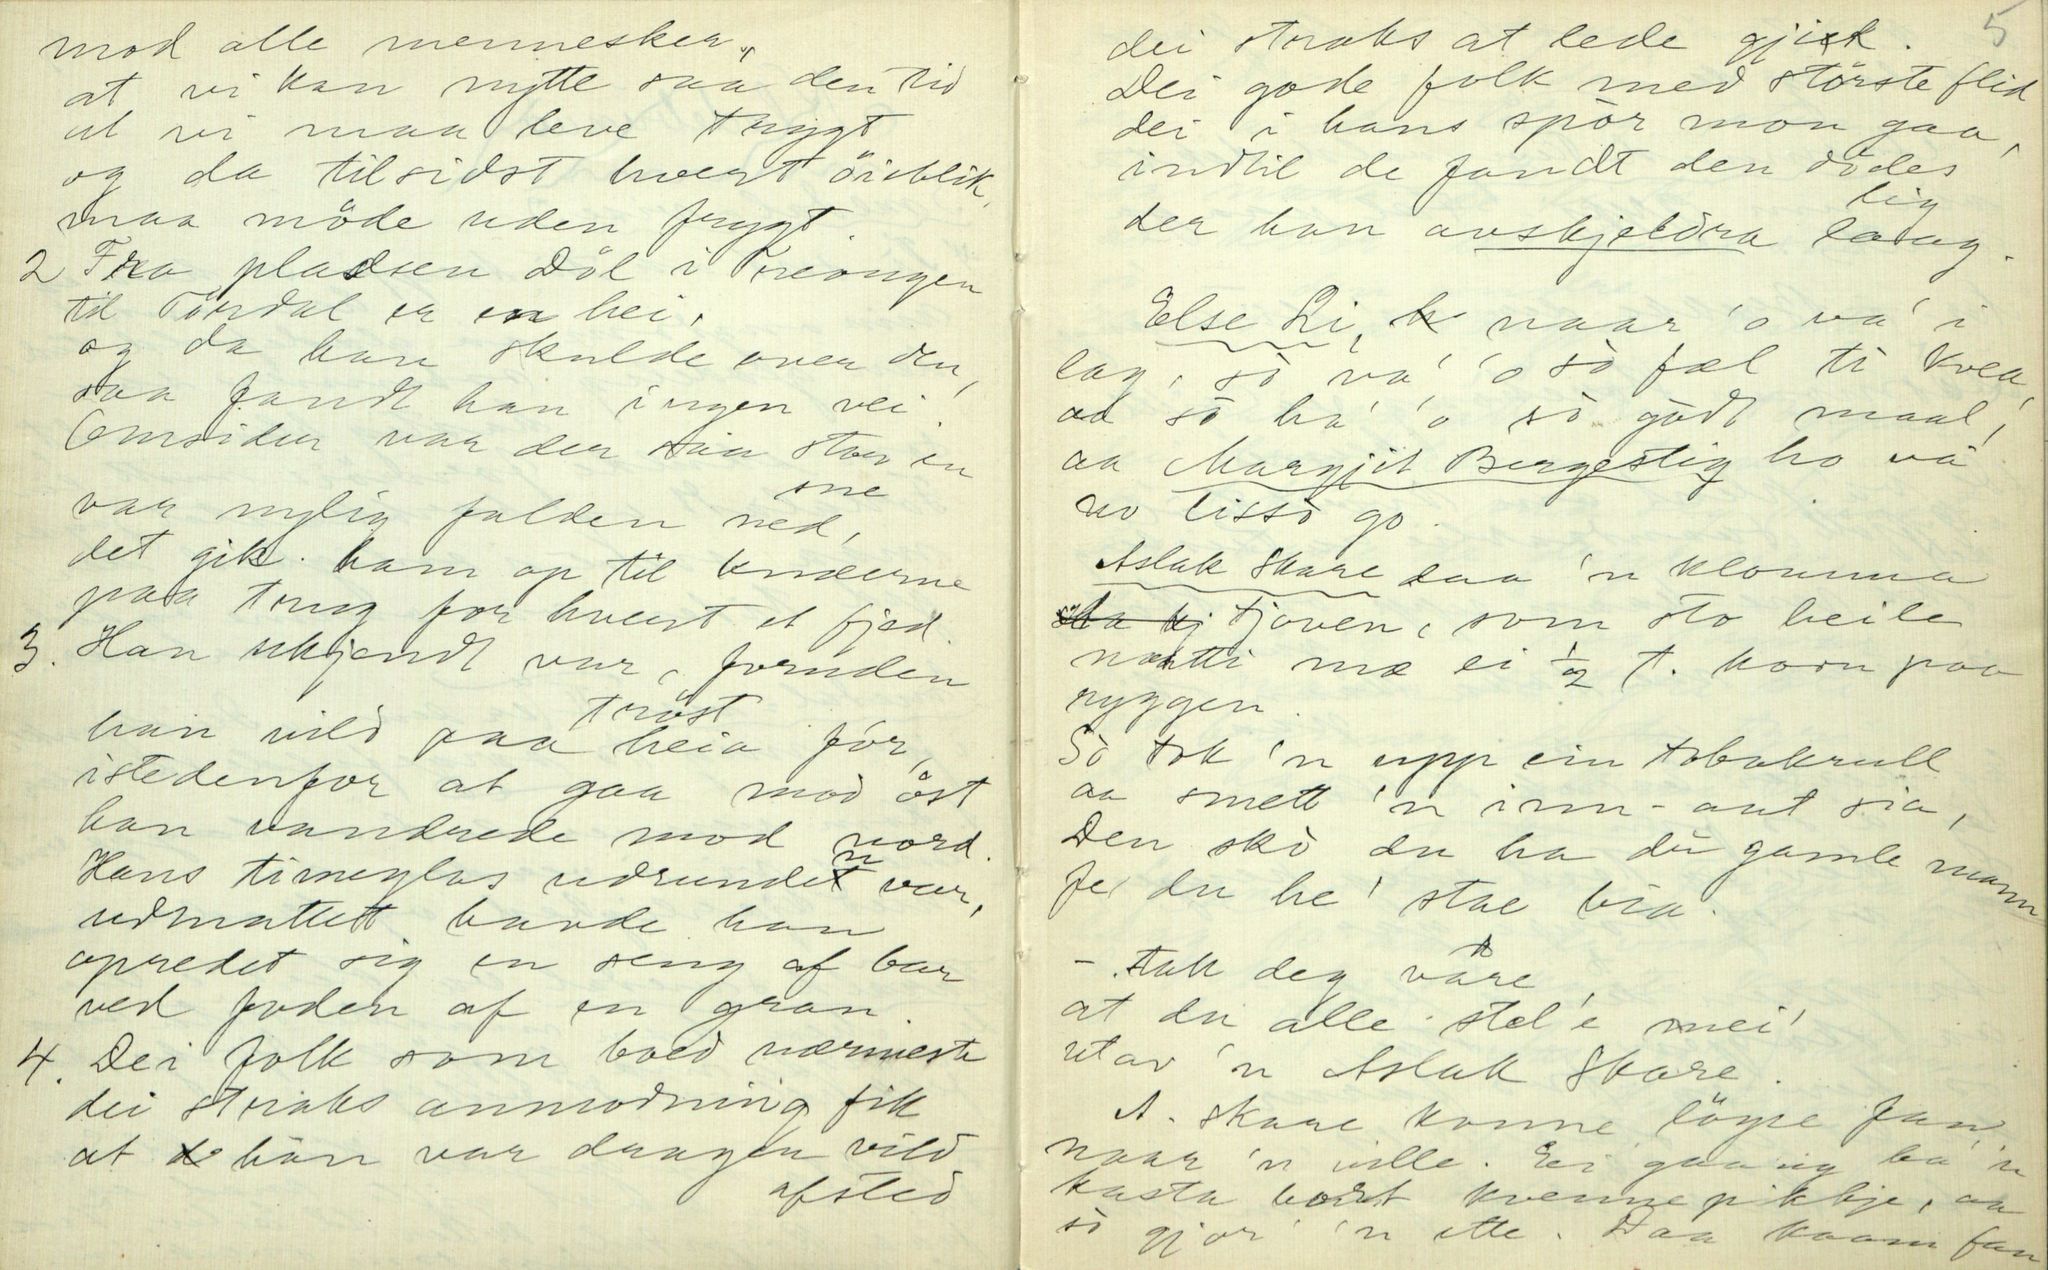 mod alle mennesker,
at vi kan nytte saa den tid
at vi maa leve trygt
og da tilsidst hvert öieblik,
maa möde uden frygt.
2 Fra pladsen Döl i Treongen
til Tördal er en hei,
og da han skulde over den,
saa fandt han ingen vei
Omsider var der saa stor en
sne
var nylig falden ned,
det gik ham op til knderne
paa trug for hvert et fjed.
3. Han ukjendt var, foruden
tröst
han vild paa heia fór,
istedenfor at gaa mod öst
han vandrede mod nord.
Hans timeglas udrundet var,
udmattet havde han
opredet sig en seng af bar
ved foden af en gran.
4. Dei folk som boed nærmeste
dei straks anmodning fik
at han var dragen vild
afsted
5
dei straks at lede gjik.
Dei gode folk med störste flid
dei i hans spör mon gaa,
indtil de fandt den dödes
lig
der han avskjeldra laag.
Else Li, naar 'o va' i
lag, sò va' 'o sò fæl ti kvea,
aa sò ha' 'o sò gódt maal,
aa Margjit Bergestig ho va
no lissò go.
Aslak Skare saa 'n klomma
tjoven, som sto heile
natti mæ ei 1/2 t. korn paa
ryggen.
Sò tok 'n upp ein tobakrull
aa smett 'n inn-aat sia,
Den skò du ha du gamle mann
fe' du he' stae bia.
- Tak deg våre,
at du alle stel'e mei'
utav 'n Aslak Skare.
A. Skare konne löyse fan,
naar 'n ville. Ei gaang ba 'n
kasta bort kvennepikkje, aa
sò gjor' 'n ette. Daa kaam fan